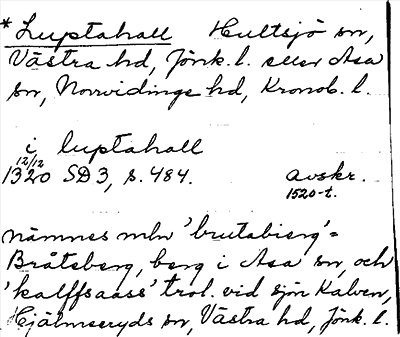 * Luptahall Hultsjö sn,
Västra hd, Jönk. l. eller Asa
sn, Norvidinge hd, Kronob. l.
i luptahall
12/12
1320 SD 3, s. 484. avskr.
1520-t.
nämnes mlw 'brutabierg' =
Bråtaberg, berg i Asa sn, och
'kalffsaass' trol. vid sjön Kalven,
Hjälmseryds sn, Västra hd, Jönk. l.